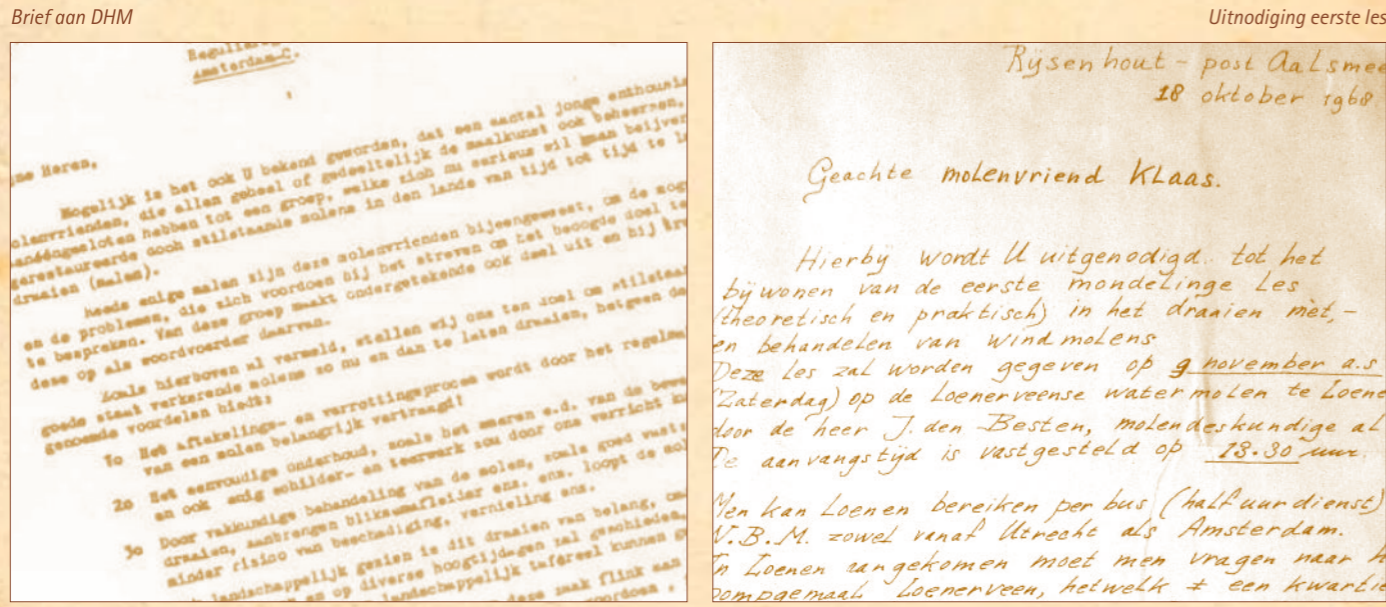 Brief aan DHM
Uitnodiging eerste les
Amsterdam-C.
Heren,
Mogelijk is het ook U bekend geworden, dat een aantal jonge
die allen geheel of gedeeltelijk de maalkunst ook beheersen,
hebben tot een groep, welke zich nu serieus wil gaan
gerestaureerde doch stilstaande molens in den lande van tijd tot tijd te
draaien (malen).
Reeds enige malen zijn deze molenvrienden bijeengeweest, om de
en de problemen, die zich voordoen bij het streven om het beoogde doel te
te bespreken. Van deze groep maakt ondergetekende ook deel uit en bij
deze op als woordvoerder daarvan.
Zoals hierboven al vermeld, stellen wij ons ten doel om
goede staat verkerende molens zo nu en dan te laten draaien, hetgeen
genoemde voordelen biedt;
1o Het aftakelings- en verrottingsproces wordt door het
van een molen belangrijk vertraagd!
2o Het eenvoudige onderhoud, zoals het smeren e.d. van de
en ook enig schilder- en teerwerk zou door ons verricht
3o Door vakkundige behandeling van de molen, zoals goed
draaien, aanbrengen bliksemafleider enz. enz. loopt de
minder risico van beschadiging, vernieling enz.
landschappelijk gezien is dit draaien van belang,
en op diverse hoogtijdagen zal geschieden,
landschappelijk tafereel kunnen
deze zaak flink aan
Rijsenhout - post Aalsmee
18 oktober 1968
Geachte molenvriend Klaas.
Hierbij wordt U uitgenodigd tot het
bijwonen van de eerste mondelinge les
(theoretisch en praktisch) in het draaien mèt,-
en behandelen van windmolens
Deze les zal worden gegeven op 9 november a.s
(Zaterdag) op de Loenerveense watermolen te Loene
door de heer J. den Besten, molendeskundige al
De aanvangstijd is vastgesteld op 13.30 uur.
Men kan Loenen bereiken per bus (half uurdienst)
N.B.M. zowel vanaf Utrecht als Amsterdam.
In Loenen aangekomen moet men vragen naar h
pompgemaal Loenerveen, hetwelk ± een kwartie